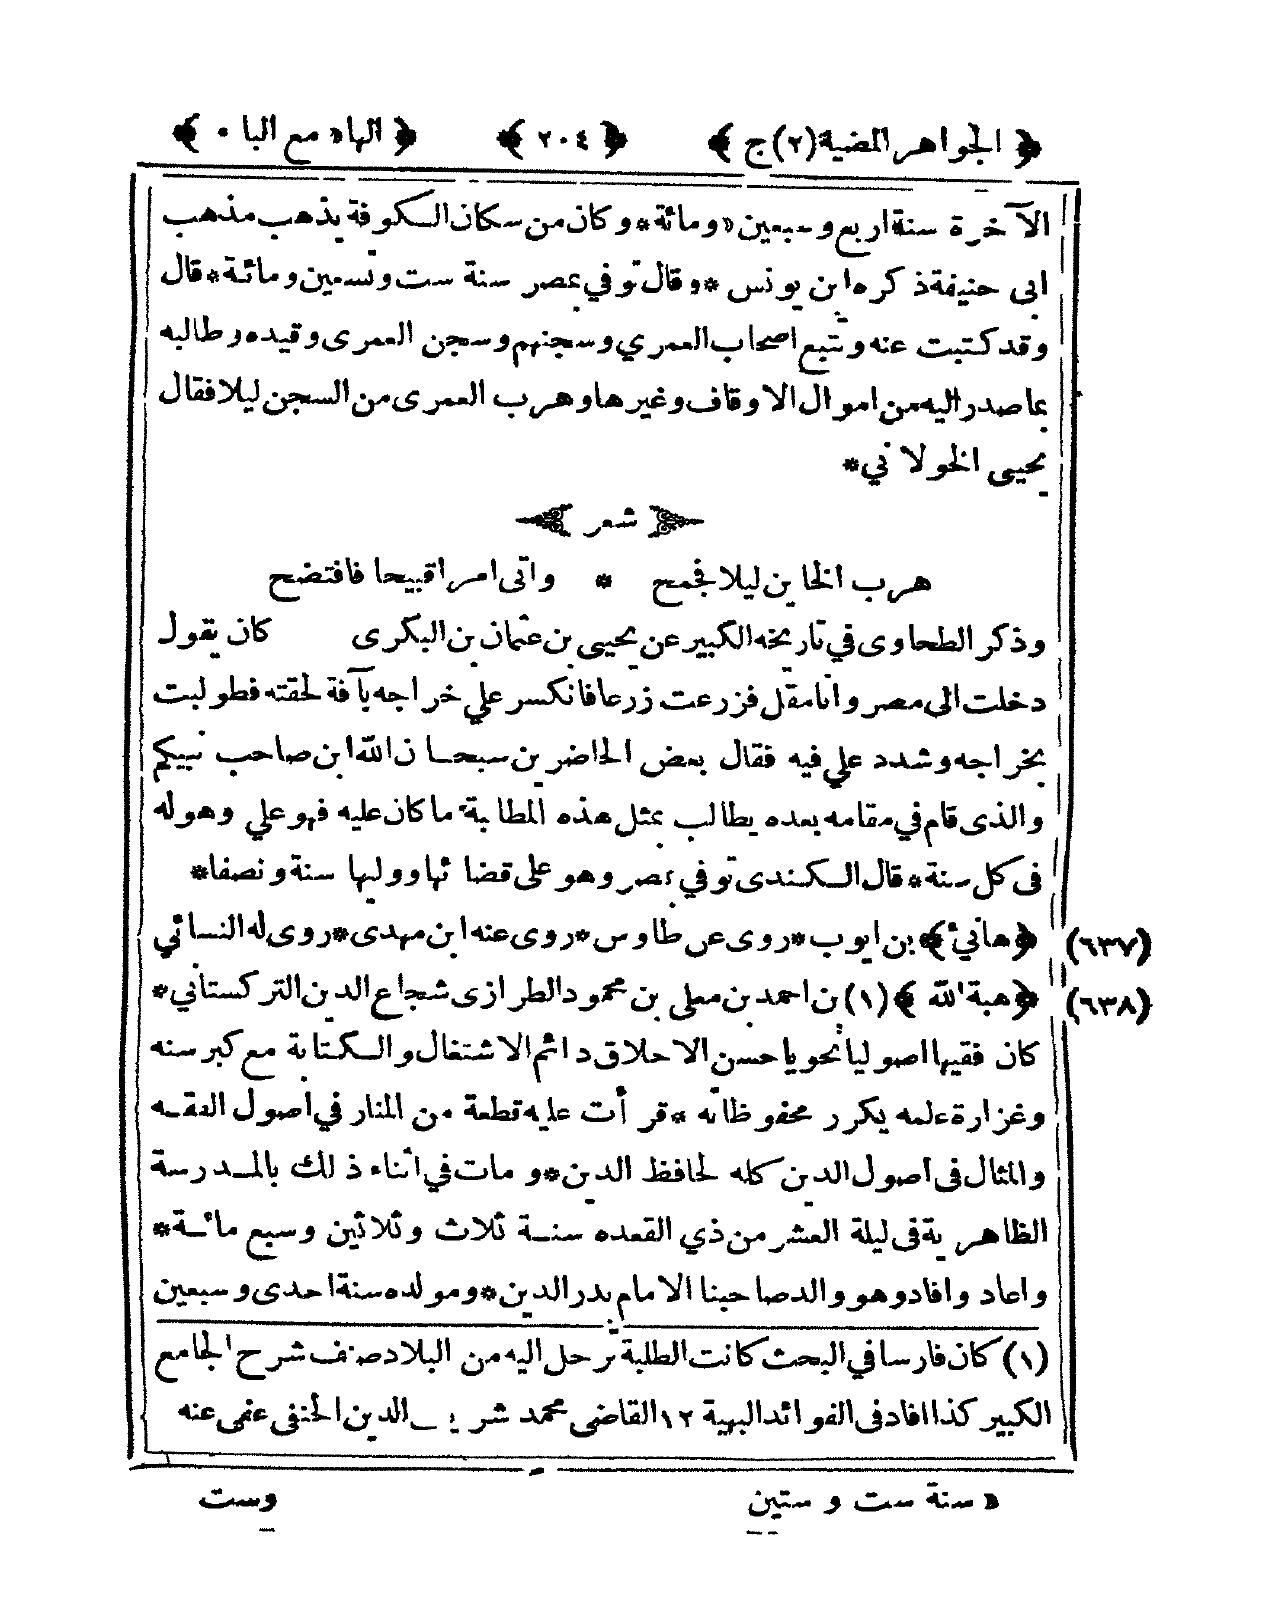 ﴿ الجواهر المضية (٢) ج ﴾ ﴿ ٢٠٤ ﴾ ﴿ الهاء مع البا ٠ ﴾
الآخرة سنة اربع وسبعين ء ومائة * وكان من سكان الكوفة يذهب مذهب
ابى حنيفة ذكره ابن يونس * وقال توفي بمصر سنة ست وتسعين ومائة * قال
وقد كتبت عنه وتتبع اصحاب العمري وسجنهم وسجن العمرى وقيده وطالبه
بما صدر اليه من اموال الاوقاف وغيرها وهرب العمرى من السجن ليلا فقال
يحيى الخولاني *
شعر
هرب الخاين ليلا فجمح * واتى امرا قبيحا فافتضح
وذكر الطحاوى في تاريخه الكبير عن يحيى بن عثمان بن البكرى كان يقول
دخلت الى مصر وانا مقل فزرعت زرعا فانكسر علي خراجه بآفة لحقته فطولبت
بخراجه وشدد علي فيه فقال بعض الحاضرين سبحان الله ابن صاحب نبيكم
والذى قام في مقامه بعده يطالب بمثل هذه المطالبة ما كان عليه فهو علي وهو له
فى كل سنة * قال الكندى توفي بمصر وهو على قضائها ووليها سنة ونصفا *
(٦٣٧) ﴿ هانئ ﴾ بن ايوب * روى عن طاوس * روى عنه ابن مهدى * روى له النسائي
(٦٣٨) ﴿ هبة الله ﴾ (١) بن احمد بن معلى بن محمود الطرازى شجاع الدين التركستاني *
كان فقيها اصوليا نحويا حسن الاخلاق دائم الاشتغال والكتابة مع كبر سنه
وغزارة علمه يكرر محفوظاته * قرأت عليه قطعة من المنار في اصول الفقه
والمثال فى اصول الدين كله لحافظ الدين * ومات في اثناء ذلك بالمدرسة
الظاهرية فى ليلة العشر من ذي القعده سنة ثلاث وثلاثين وسبع مائة *
واعاد وافاد وهو والد صاحبنا الامام بدر الدين * ومولده سنة احدى وسبعين
(١) كان فارسا في البحث كانت الطلبة ترحل اليه من البلاد صنف شرح الجامع
الكبير كذا افاد فى الفوائد البهية ١٢ القاضى محمد شريف الدين الحنفى عفى عنه
ء سنة ست و ستين
وست